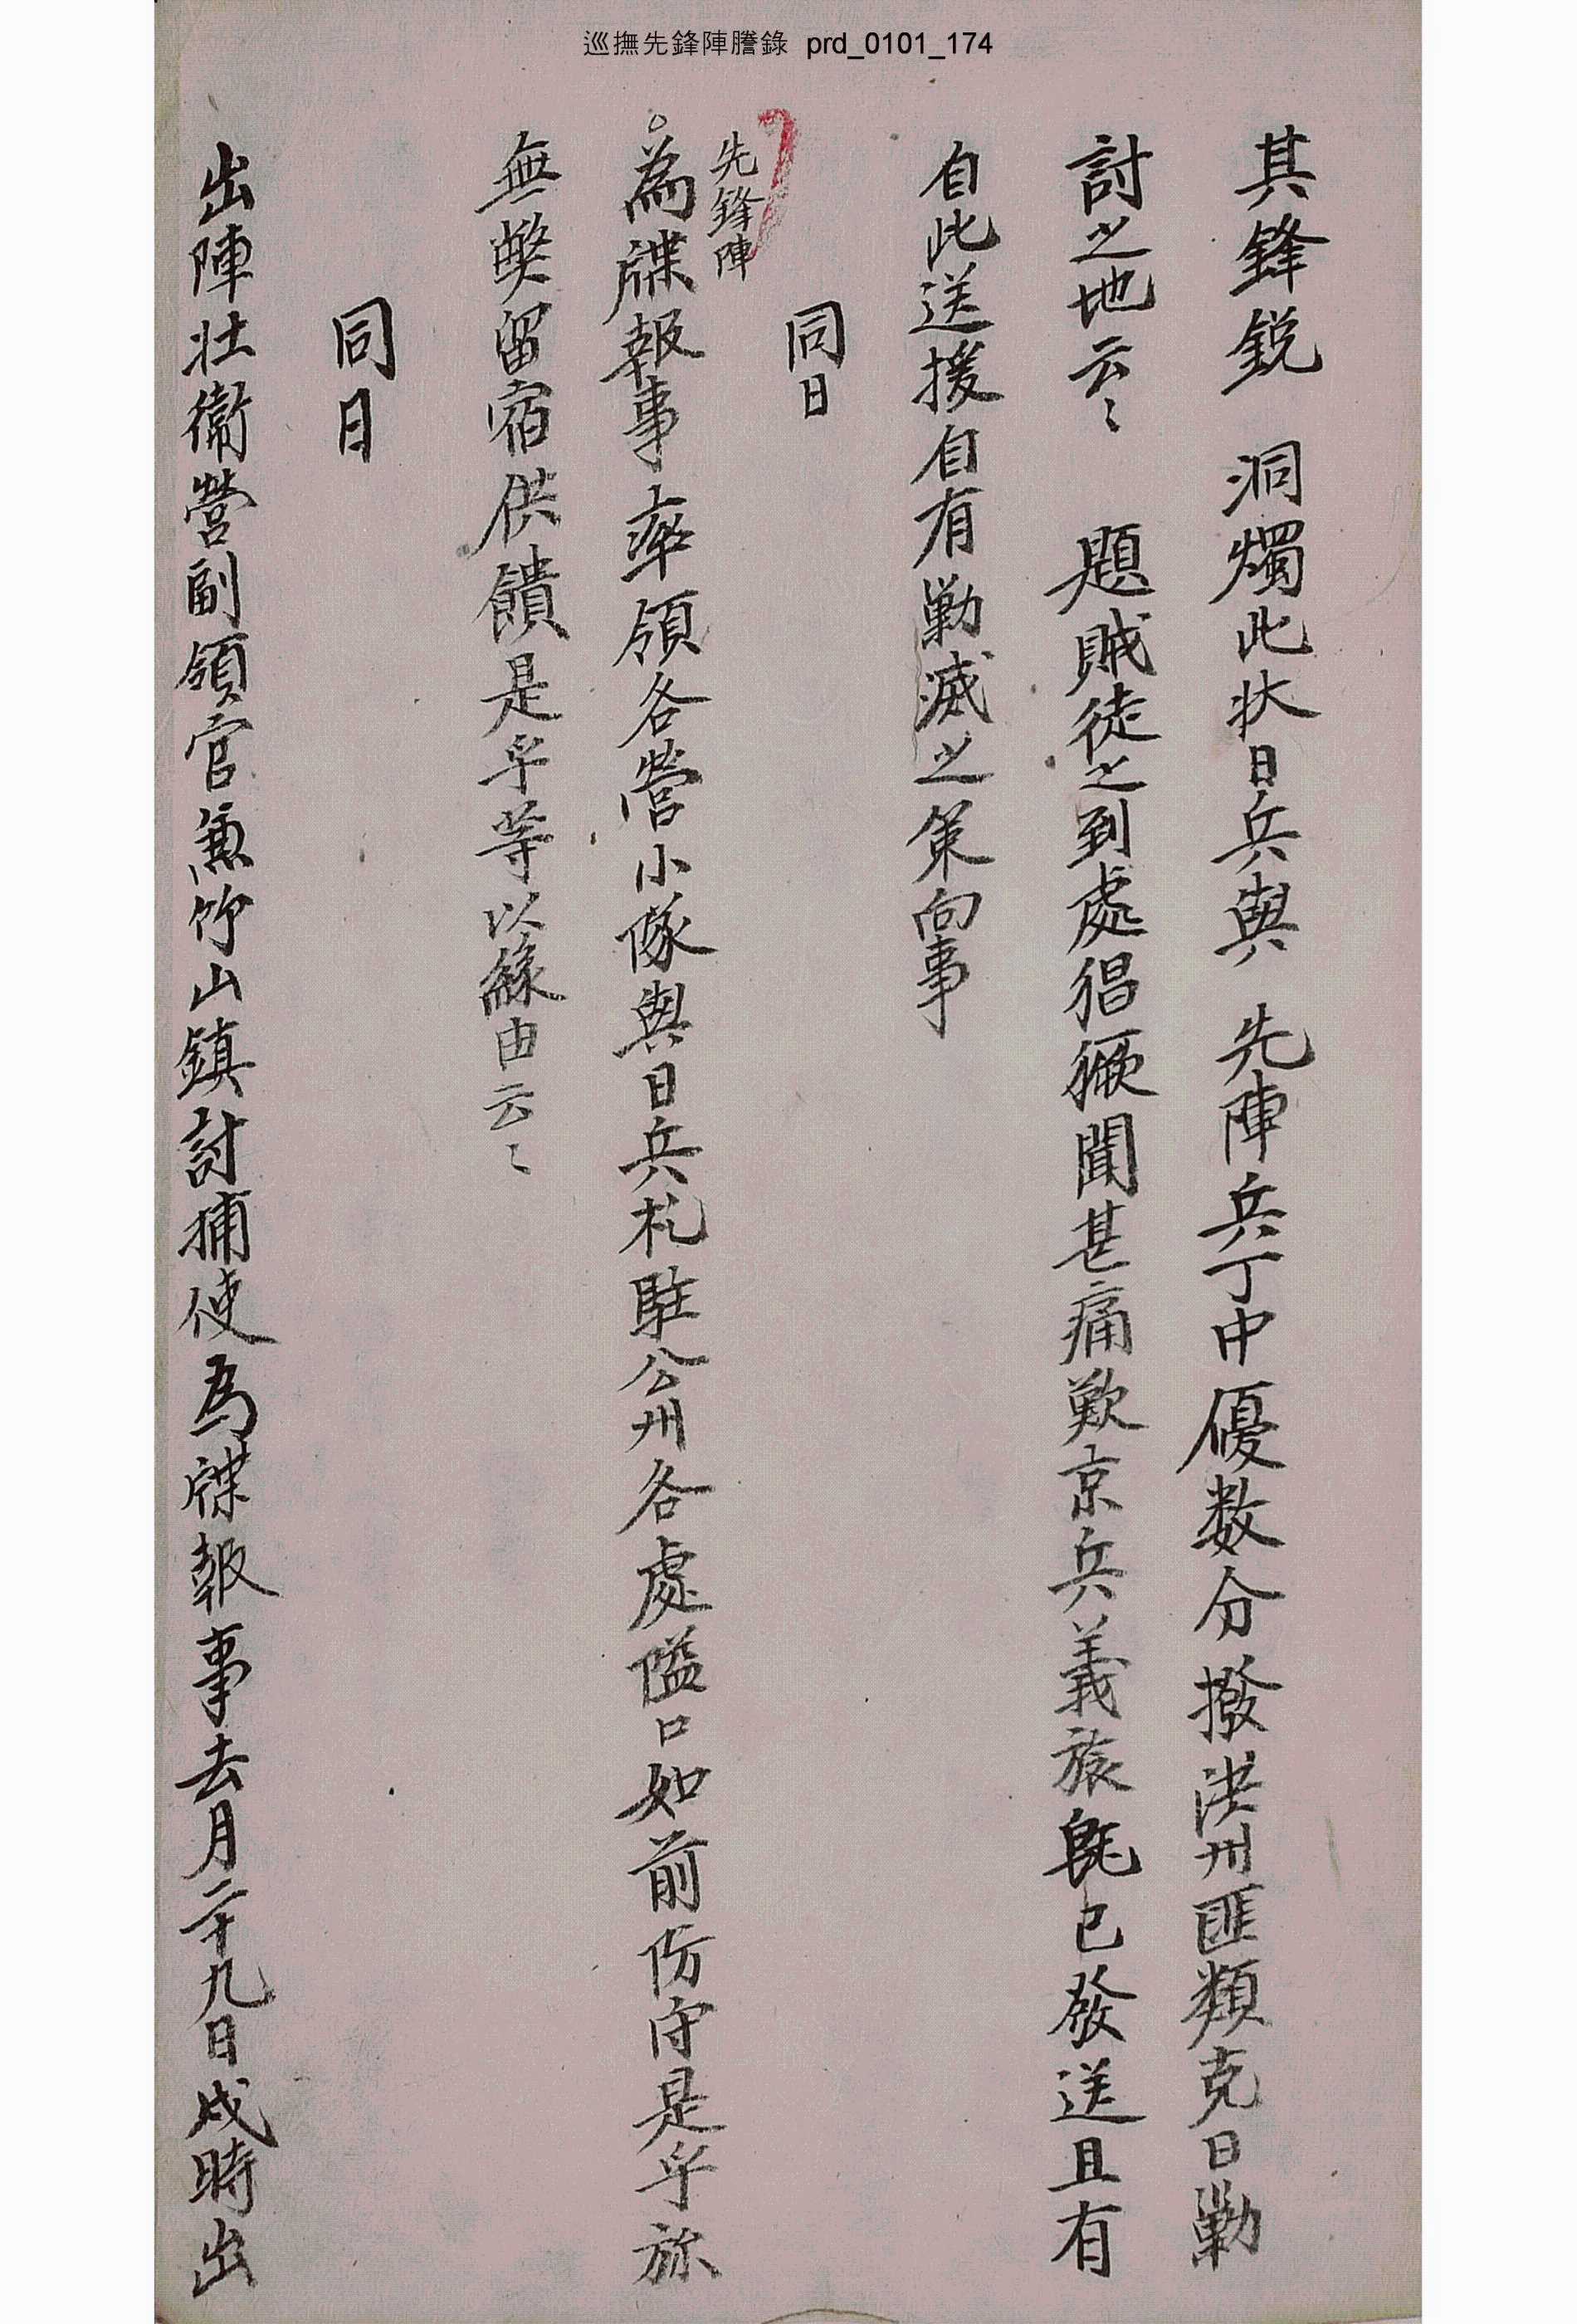 巡撫先鋒陣謄錄 prd_0101_174
其鋒銳 洞燭此狀日兵與 先陣兵丁中優數分撥洪州匪類克日勦
討之地云〻 題賊徒之到處猖獗聞甚痛歎京兵義旅旣已發送且有
自此送援自有勦滅之策向事
同日
先鋒陣
。為牒報事率領各營小隊與日兵札駐公州各處隘口如前防守是乎旀
無獘留宿供饋是乎等以緣由云〻
同日
出陣壯衛營副領官兼竹山鎮討捕使為牒報事去月二十九日戌時出